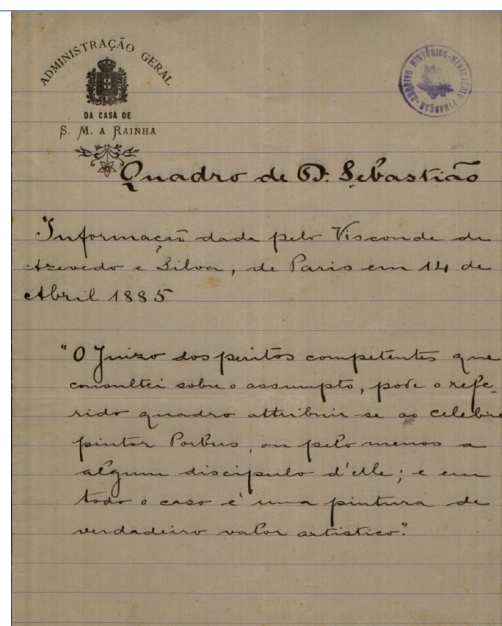 ADMINISTRAÇÃO GERAL
DA CASA DE
S. M. A RAINHA
ARQUIVO HISTÓRICO-MINISTÉRIO FINANÇAS
Quadro de D. Sebastião
Informaçaõ dada pelo Visconde de
Azevedo e Silva, de Paris em 14 de
Abril 1885
"O Juizo dos peritos competentes que
consultei sobre o assumpto, pode o refe-
rido quadro attribuir-se ao celebre
pintor Porbus, ou pelo menos a
algum discipulo d'elle; e em
todo o caso é uma pintura de
verdadeiro valor artistico".